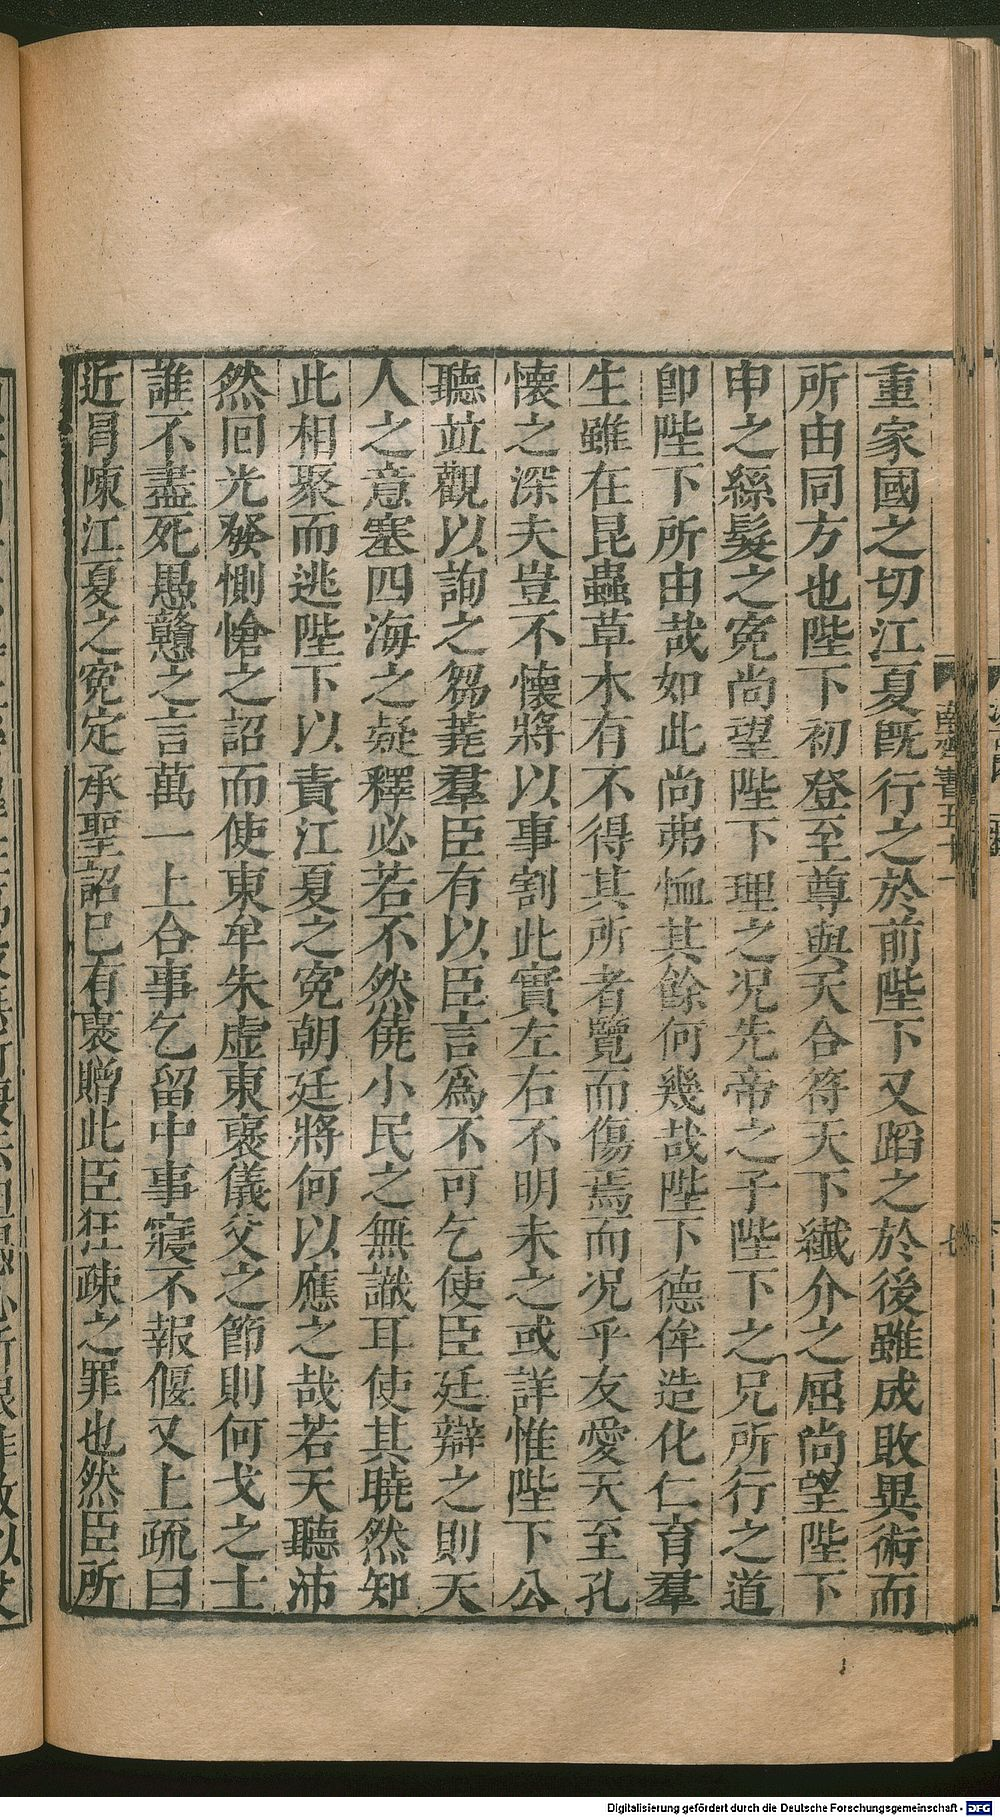 重家國之切江夏旣行之於前陛下又蹈之於後雖成敗異術而
所由同方也陛下初登至尊與天合符天下纎介之屈尚望陛下
申之絲髮之寃尚望陛下理之况先帝之子陛下之兄所行之道
卽陛下所由哉如此尚弗恤其餘何幾哉陛下德侔造化仁育羣
生雖在昆蟲草木有不得其所者覽而傷焉而况乎友愛天至孔
懷之深夫豈不懷將以事割此實左右不明未之或詳惟陛下公
聽並觀以詢之芻蕘羣臣有以臣言爲不可乞使臣廷辯之則天
人之意塞四海之疑釋必若不然僥小民之無識耳使其曉然知
此相聚而逃陛下以責江夏之寃朝廷將何以應之哉若天聽沛
然回光發惻愴之詔而使東牟朱虛東襃儀父之節則何戈之士
誰不盡死愚戇之言萬一上合事乞留中事寢不報偃又上疏曰
近冐陳江夏之寃定承聖詔巳有襃贈此臣狂疎之罪也然臣所
南齊書五十一
七
Digitalisierung gefördert durch die Deutsche Forschungsgemeinschaft - DFG